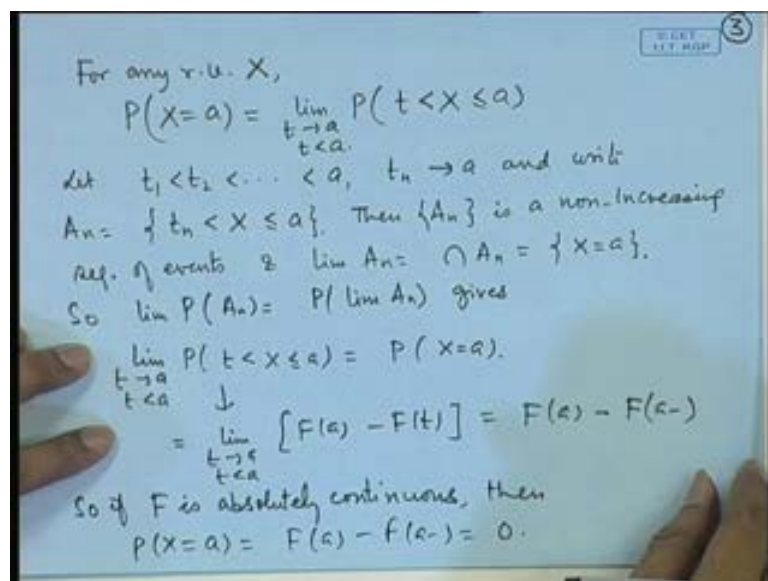 3
© CET
I.I.T. KGP
For any r.v. X,
P(X=a) = lim P(t < X ≤ a)
t→a
t<a.
Let t₁ < t₂ < ... < a, tₙ → a and write
Aₙ = {tₙ < X ≤ a}. Then {Aₙ} is a non-increasing
seq. of events & lim Aₙ = ∩ Aₙ = {X=a}.
So lim P(Aₙ) = P(lim Aₙ) gives
lim P(t < X ≤ a) = P(X=a).
t→a
t<a ↓
= lim [F(a) - F(t)] = F(a) - F(a-)
t→a
t<a
So if F is absolutely continuous, then
P(X=a) = F(a) - F(a-) = 0.